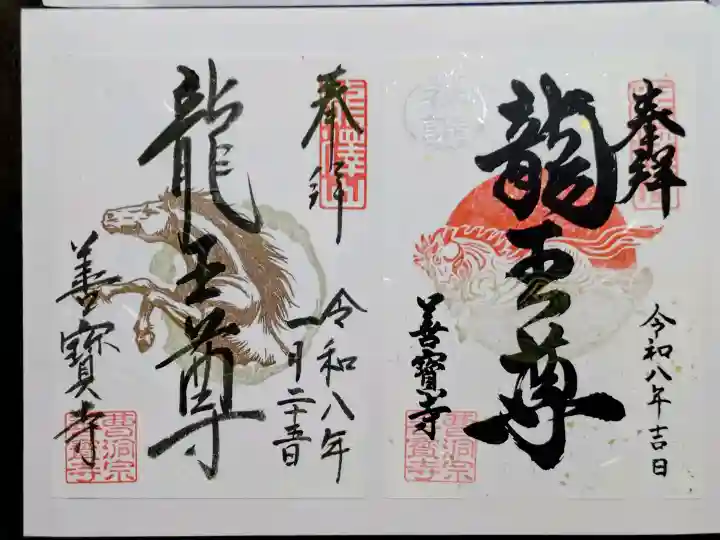 奉拝
龍王尊
善寳寺
曹洞宗
善寳寺
令和八年
一月二十五日
奉拝
龍王尊
善寳寺
曹洞宗
善寳寺
令和八年吉日